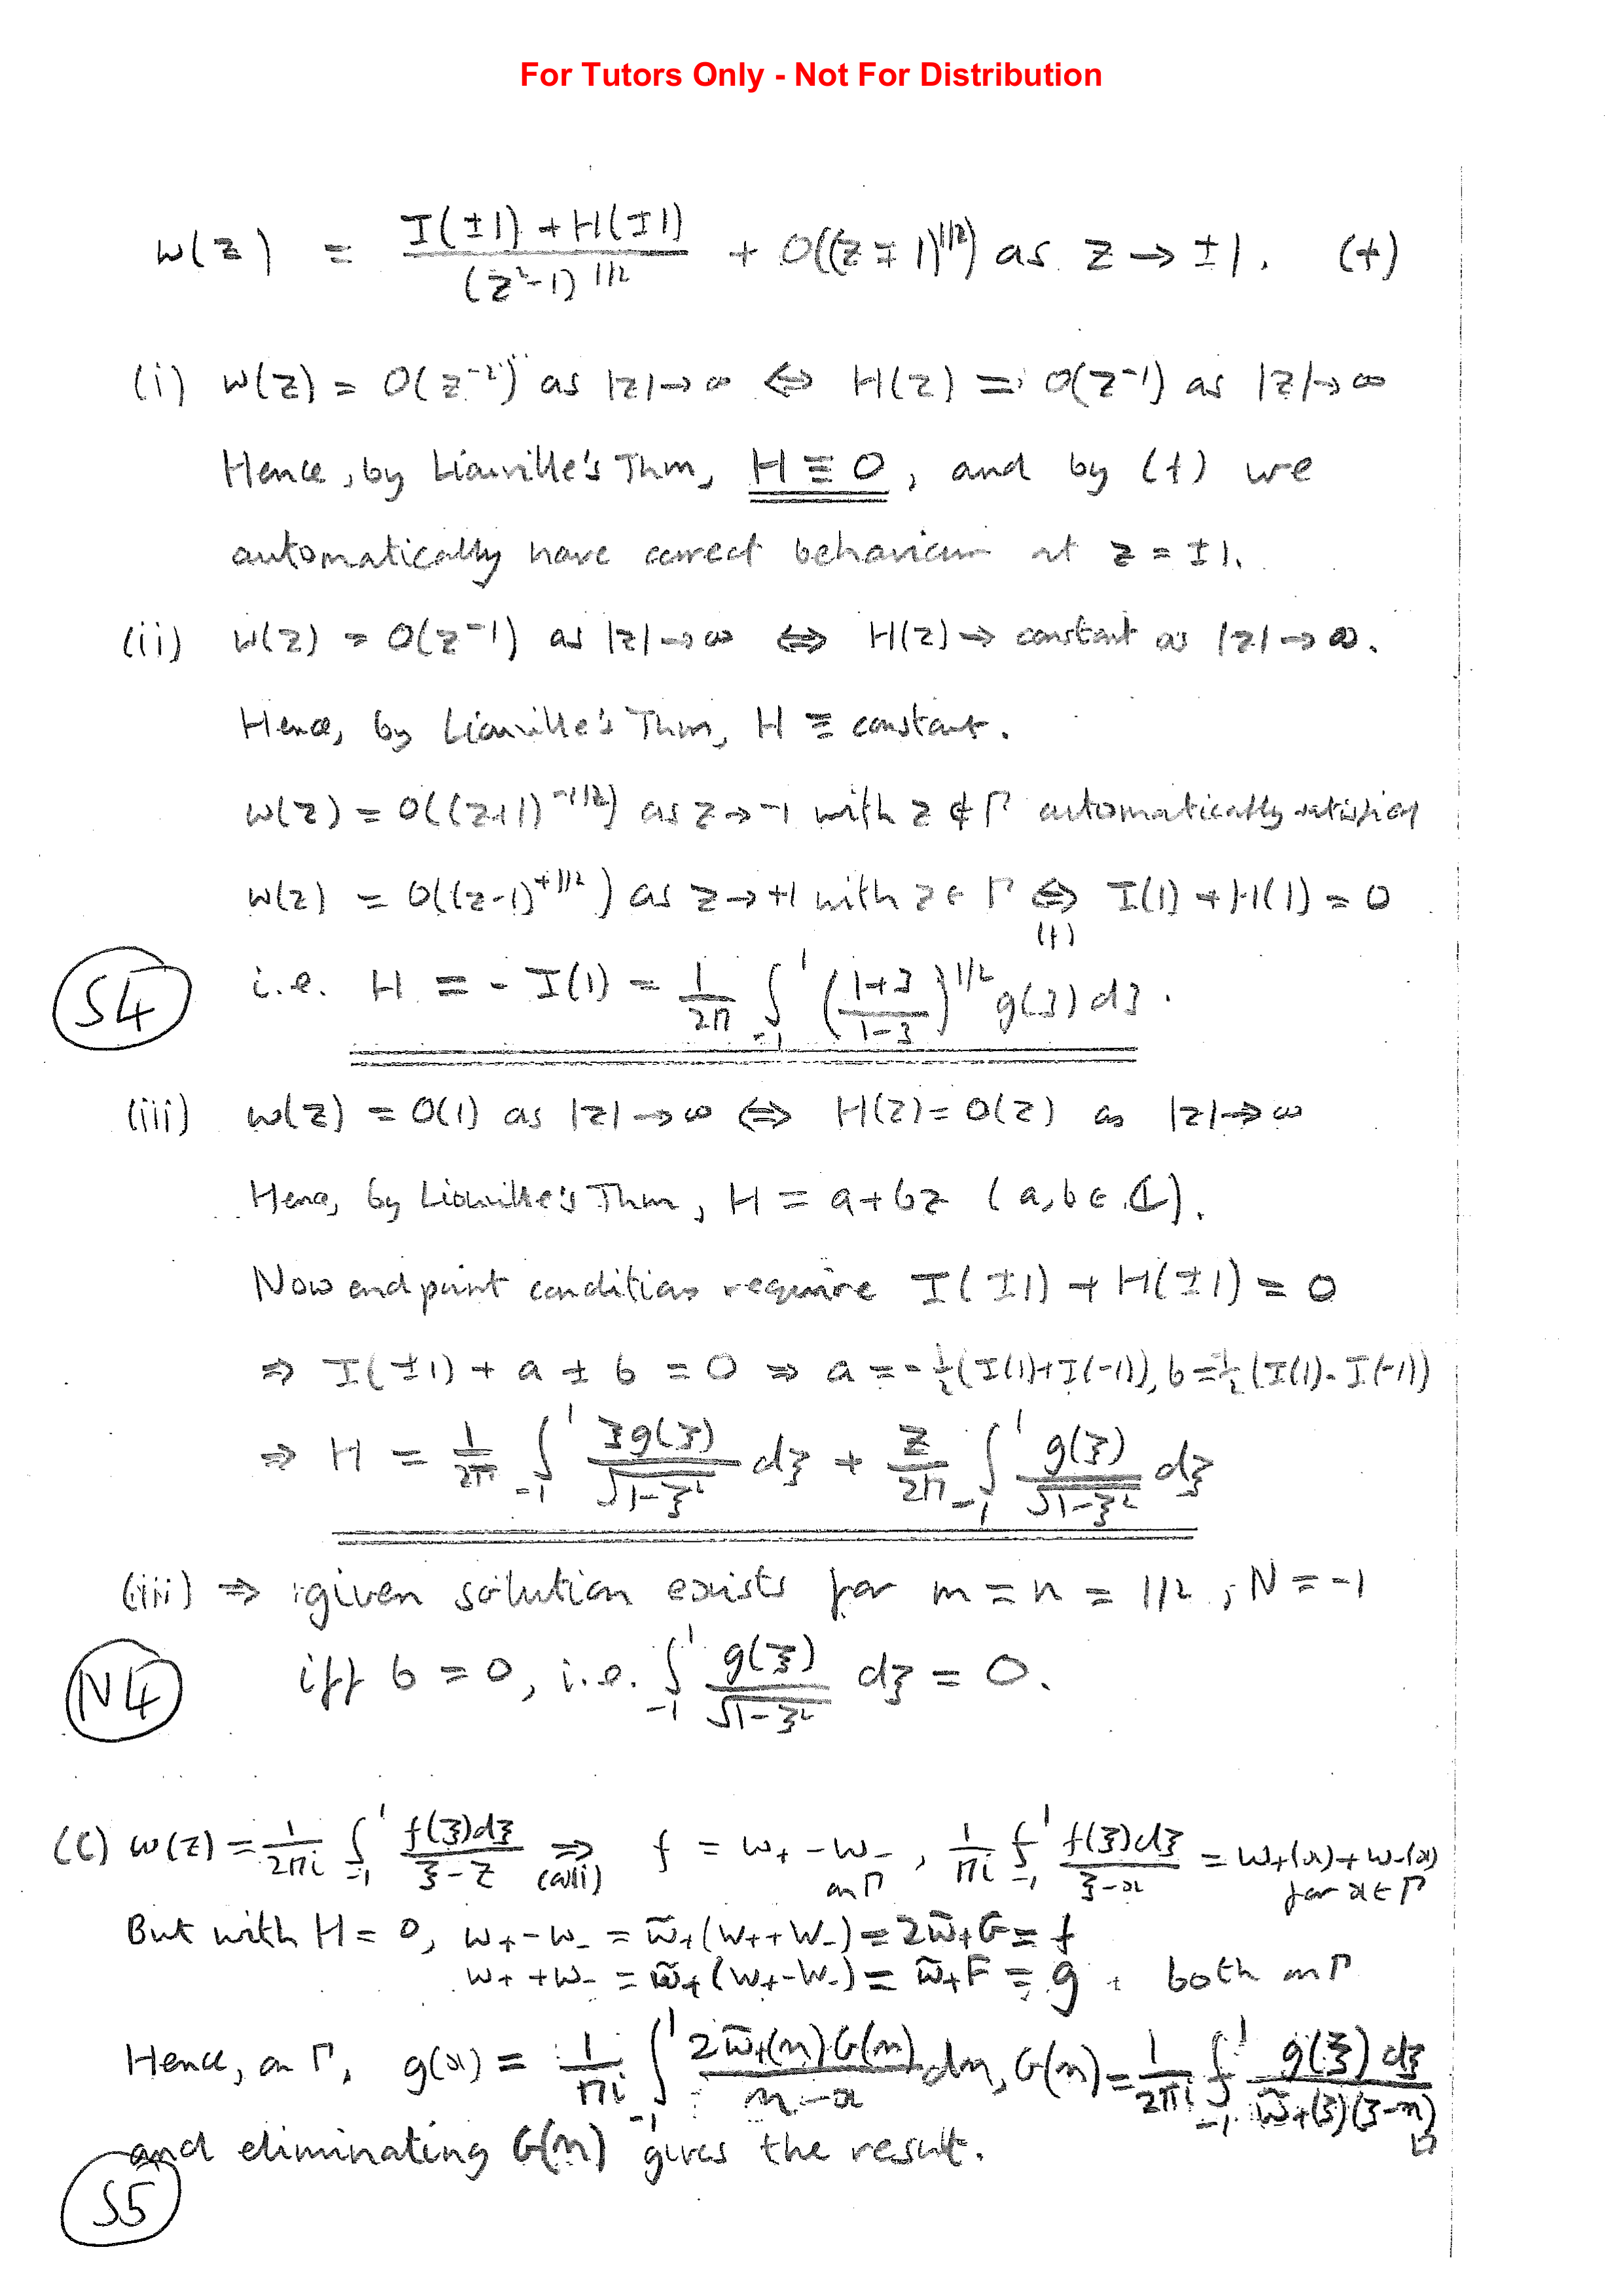 For Tutors Only - Not For Distribution
w(z) = (I(±1) + H(±1)) / (z²-1)^{1/2} + O((z∓1)^{1/2}) as z → ±1. (†)
(i) w(z) = O(z^{-2}) as |z| → ∞ ⇔ H(z) = O(z^{-1}) as |z| → ∞
Hence, by Liouville's Thm, H ≡ 0, and by (†) we
automatically have correct behaviour at z = ±1.
(ii) w(z) = O(z^{-1}) as |z| → ∞ ⇔ H(z) → constant as |z| → ∞.
Hence, by Liouville's Thm, H ≡ constant.
w(z) = O((z+1)^{-1/2}) as z → -1 with z ∉ Γ automatically satisfied
w(z) = O((z-1)^{+1/2}) as z → +1 with z ∈ Γ ⇔ I(1) + H(1) = 0
(†)
S4
i.e. H = - I(1) = 1/2π ∫_{-1}^{1} ((1+ξ)/(1-ξ))^{1/2} g(ξ) dξ.
(iii) w(z) = O(1) as |z| → ∞ ⇔ H(z) = O(z) as |z| → ∞
Hence, by Liouville's Thm, H = a + bz (a, b ∈ ℂ).
Now end point conditions require I(±1) + H(±1) = 0
⇒ I(±1) + a ± b = 0 ⇒ a = -½(I(1)+I(-1)), b = ½(I(1) - I(-1))
⇒ H = 1/2π ∫_{-1}^{1} ξg(ξ)/√(1-ξ²) dξ + z/2π ∫_{-1}^{1} g(ξ)/√(1-ξ²) dξ
(iii) ⇒ given solution exists for m = n = 1/2, N = -1
N4
iff b = 0, i.e. ∫_{-1}^{1} g(ξ)/√(1-ξ²) dξ = 0.
(c) w(z) = 1/2πi ∫_{-1}^{1} f(ξ)dξ/(ξ-z) ⇒ (a(ii)) f = w₊ - w₋ on Γ, 1/πi ⨍_{-1}^{1} f(ξ)dξ/(ξ-x) = w₊(x) + w₋(x) for x ∈ Γ
But with H = 0, w₊ - w₋ = w̃₊(W₊+W₋) = 2w̃₊G = f
w₊ + w₋ = w̃₊(W₊-W₋) = w̃₊F = g, both on Γ
Hence, on Γ, g(x) = 1/πi ∫_{-1}^{1} 2w̃₊(η)G(η)/(η-x) dη, G(η) = 1/2πi ⨍_{-1}^{1} g(ξ)dξ/(w̃₊(ξ)(ξ-η))
and eliminating G(η) gives the result. □
S5